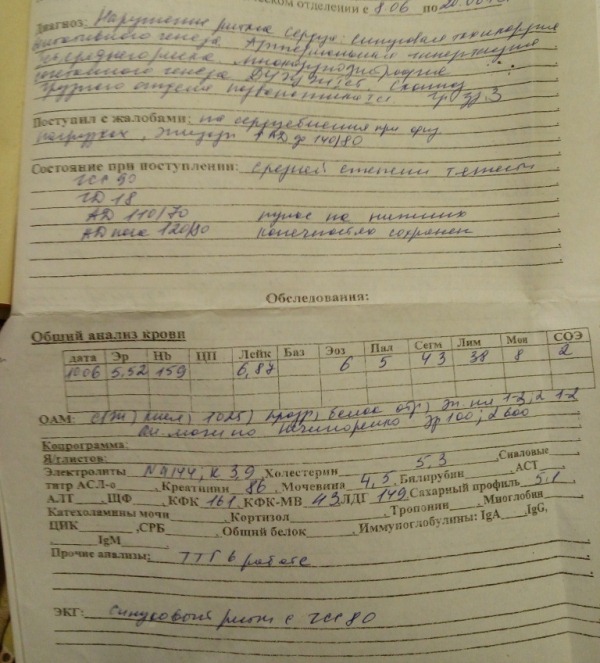 ческом отделении с 8.06 по 20.06
Диагноз: Нарушение ритма сердца: синусовая тахикардия
вегетативного генеза Артериальная гипертензия
среднего риска
сочетанного генеза
грудного отдела позвоночника гр зд 3
Поступил с жалобами: на сердцебиения при физ
нагрузках, эпизоды АД до 140/80
Состояние при поступлении: средней степени тяжести
ЧСС 90
ЧД 18
АД 110/70 пульс на нижних
АД нога 120/80 конечностях сохранен
Обследования:
Общий анализ крови
дата Эр Hb ЦП Лейк Баз Эоз Пал Сегм Лим Мон СОЭ
1006 5,52 159 6,87 6 5 43 38 8 2
ОАМ: с/ж, кисл, 1025, прозр, белок отр, Эп. пл 1-2, L 1-2
Ан. мочи по Нечипоренко Эр 100; L 600
Копрограмма:
Я/глистов:
Электролиты Na 144, K 3,9, Холестерин 5,3, Сиаловые
титр АСЛ-о, Креатинин 86, Мочевина 4,5, Билирубин, АСТ,
АЛТ, ЩФ, КФК 161, КФК-МВ 43, ЛДГ 149, Сахарный профиль 5,1,
Катехоламины мочи, Кортизол, Тропонин, Миоглобин
ЦИК, СРБ, Общий белок, Иммуноглобулины: IgA, IgG,
, IgM
Прочие анализы: ТТГ в работе
ЭКГ: синусовый ритм с ЧСС 80